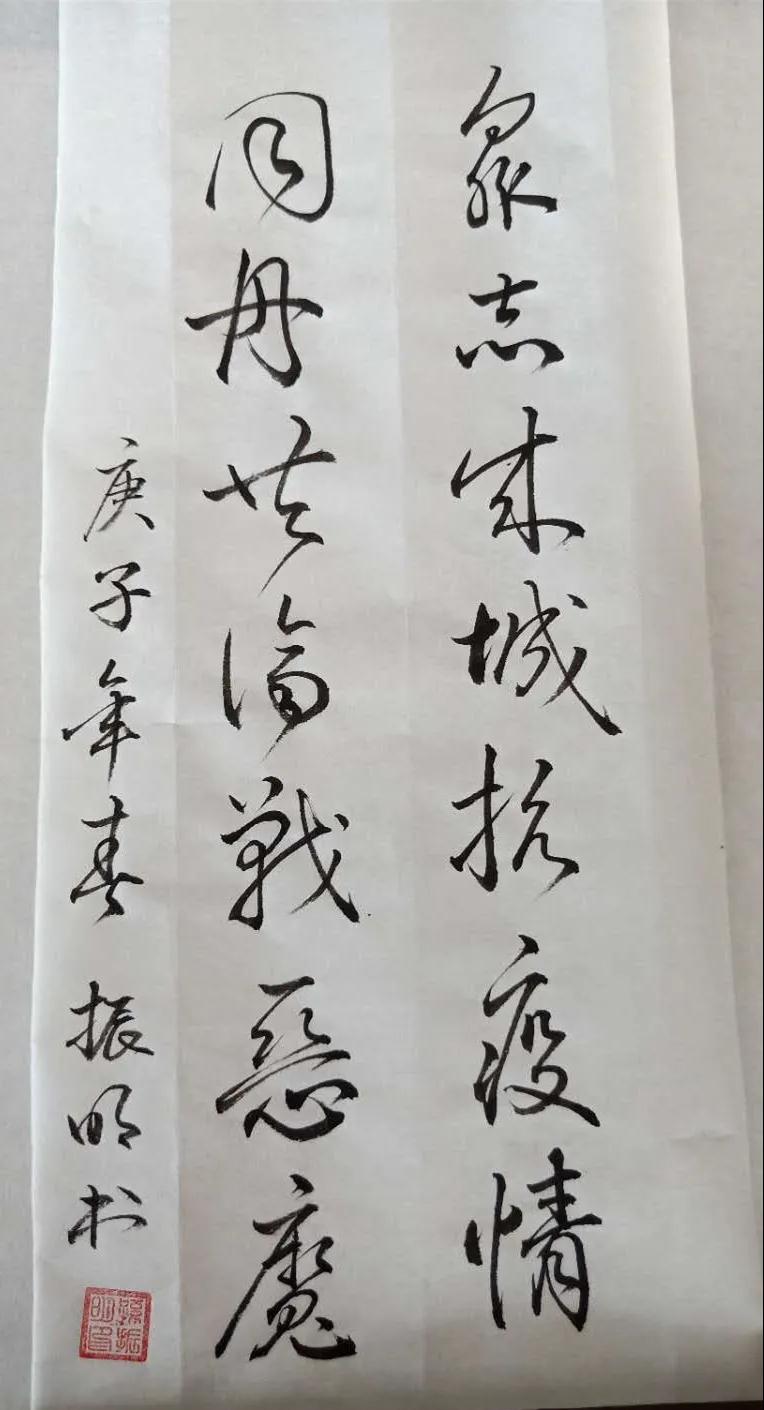 衆志成城抗疫情
同舟共濟戰惡魔
庚子年春 振明书